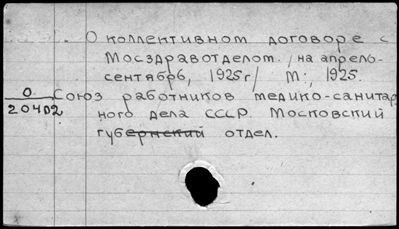 О коллективном договоре с
Мосздравотделом /на апрель-
сентябрь, 1925г/ М., 1925.
О
20402
Союз работников медико-санитар
ного дела СССР. Московский
губернский отдел.